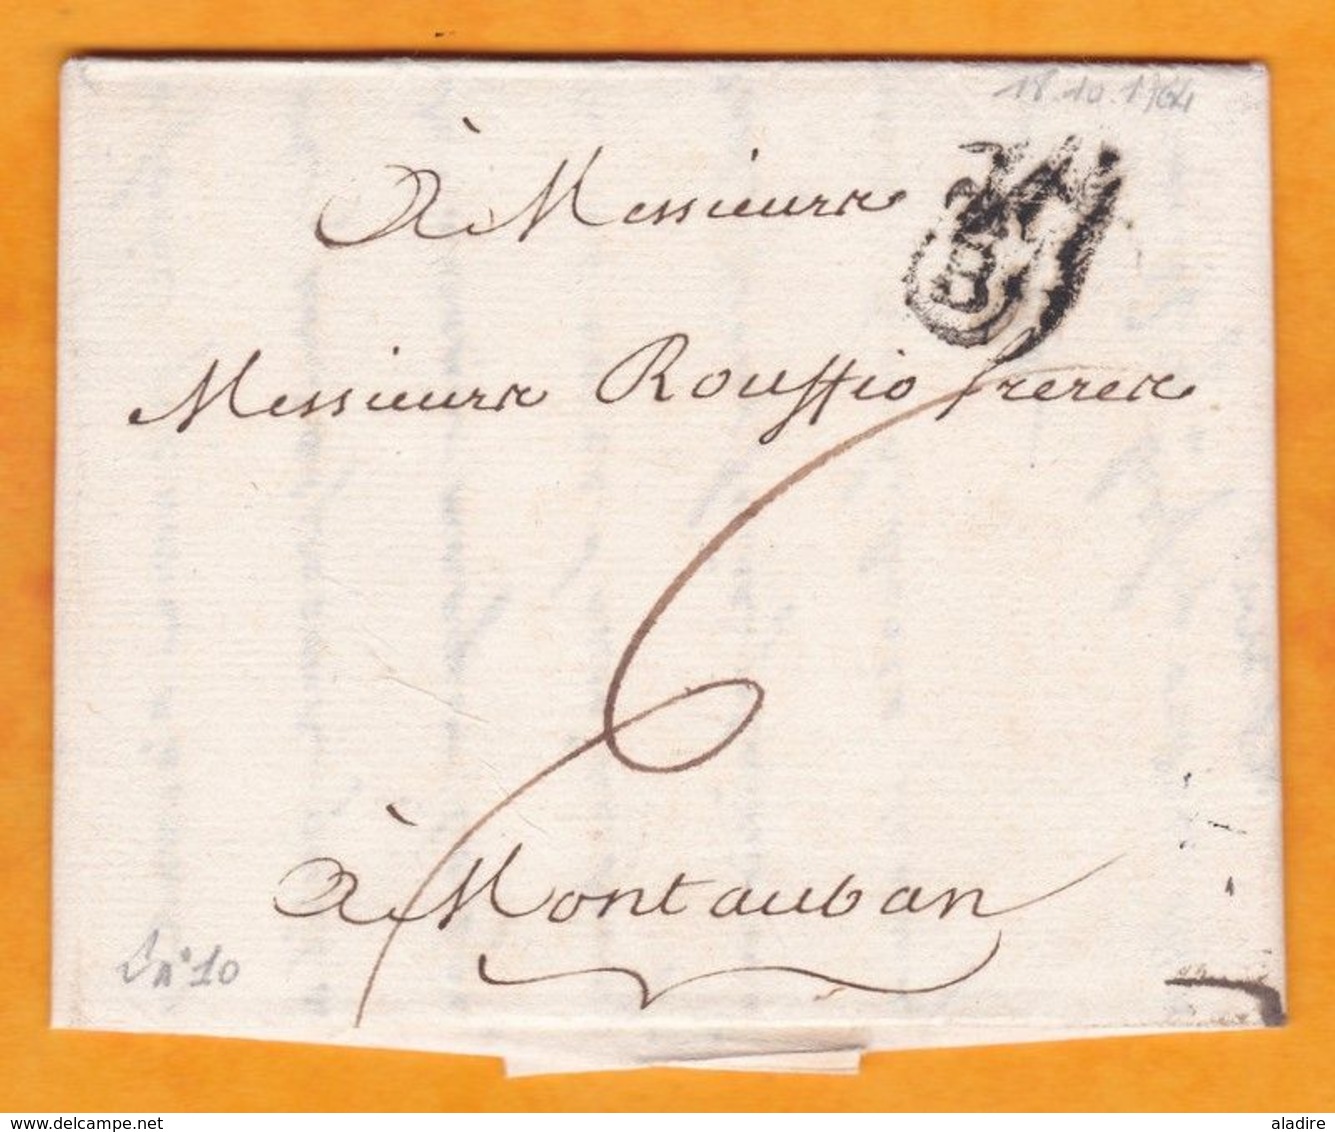 18.10.1764
à Messieurs
B
Messieurs Rouffio freres
6
à Montauban
n° 10
delcampe.net
aladire